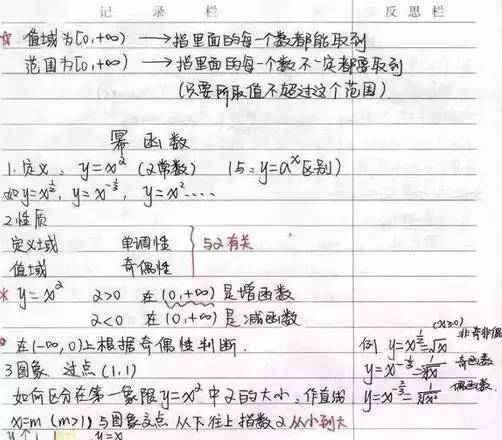 记录栏
反思栏
☆ 值域为[0,+∞) ⟶ 指里面的每一个数都能取到
范围为[0,+∞) ⟶ 指里面的每一个数不一定都要取到
(只要所取值不超过这个范围)
幂函数
1.定义: y=x^α (α常数) (与:y=a^x区别)
如y=x^{1/2}, y=x^{-1/3}, y=x²....
2.性质
定义域 单调性 } 与α有关
值域 奇偶性
* y=x^α α>0 在(0,+∞)是增函数
α<0 在(0,+∞)是减函数
在(-∞,0)上根据奇偶性判断.
例 y=x^{1/2}=√x (x≥0) 非奇非偶
3图象 过点(1,1)
y=x^{-1/3}=1/∛x 奇函数
如何区分在第一象限y=x^α中α的大小:作直线
y=x^{-2/3}=1/∛x² 偶函数
x=m (m>1)与图象交点从下往上指数α从小到大
y y=x